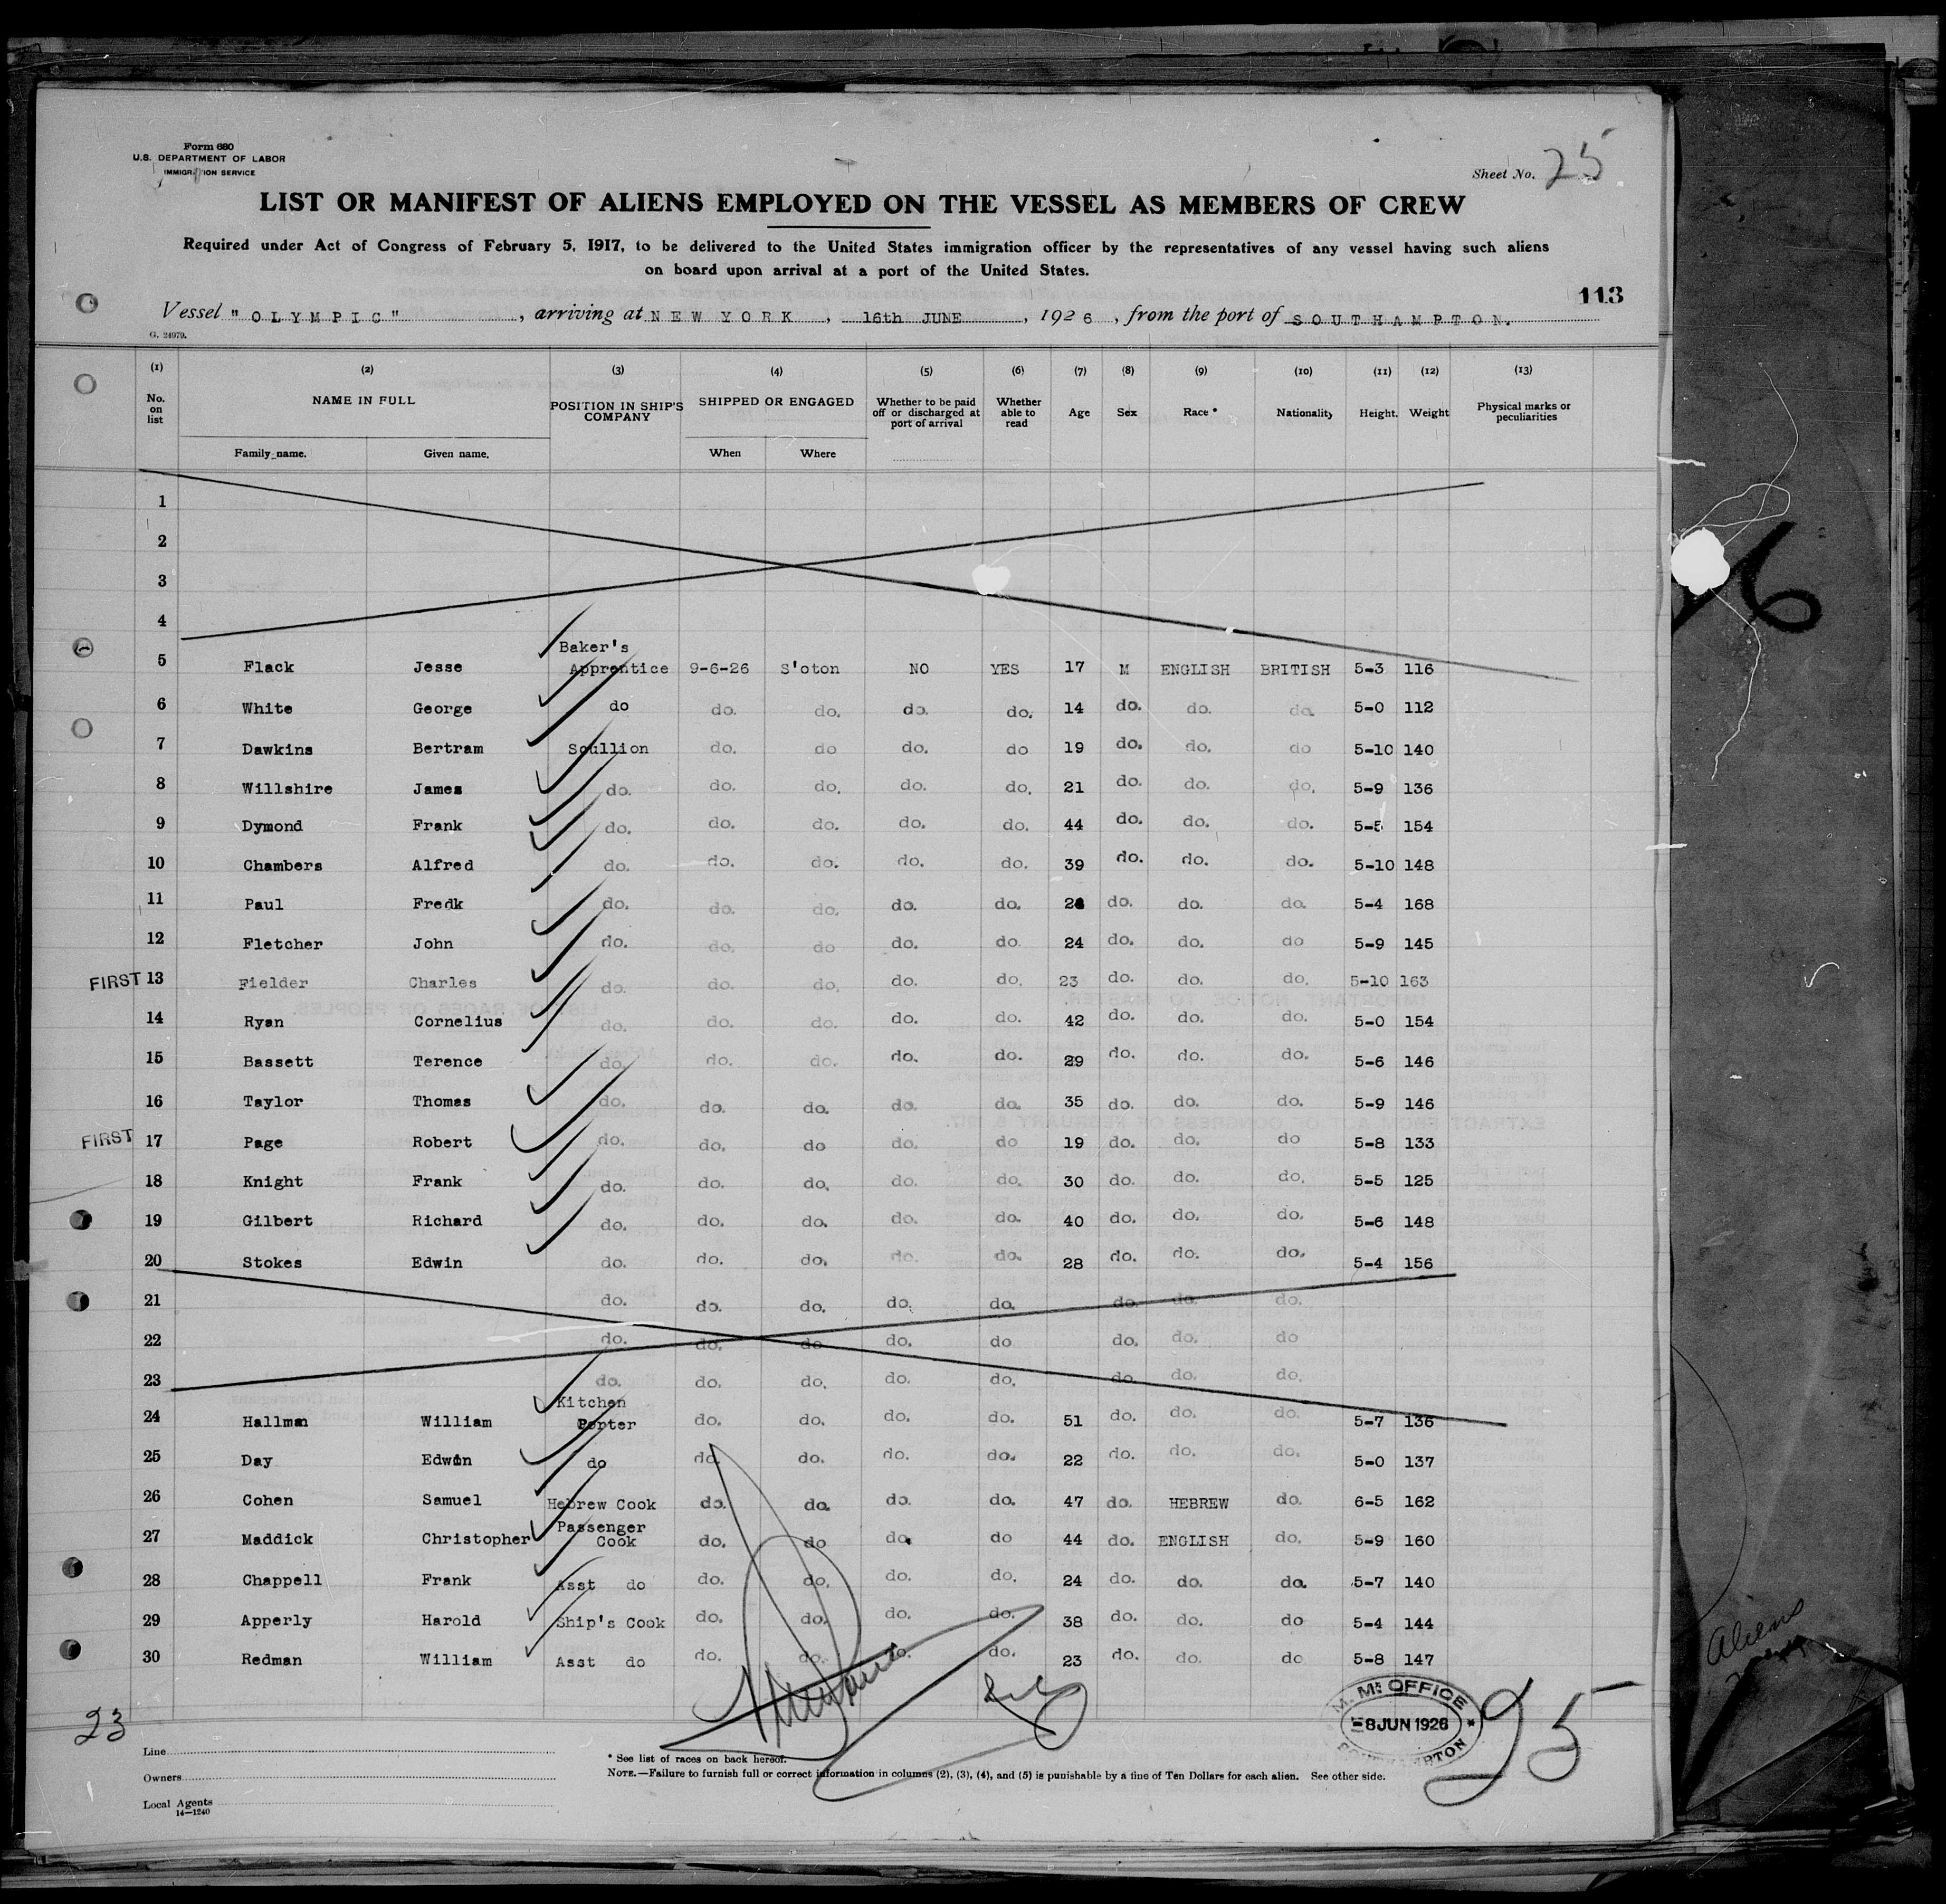 Form 680
U.S. DEPARTMENT OF LABOR
IMMIGRATION SERVICE
Sheet No. 25
LIST OR MANIFEST OF ALIENS EMPLOYED ON THE VESSEL AS MEMBERS OF CREW
Required under Act of Congress of February 5, 1917, to be delivered to the United States immigration officer by the representatives of any vessel having such aliens
on board upon arrival at a port of the United States.
113
Vessel "OLYMPIC", arriving at NEW YORK, 16th JUNE, 1926, from the port of SOUTHAMPTON.
G. 24979.
(1) (2) (3) (4) (5) (6) (7) (8) (9) (10) (11) (12) (13)
No. on list NAME IN FULL POSITION IN SHIP'S COMPANY SHIPPED OR ENGAGED Whether to be paid off or discharged at port of arrival Whether able to read Age Sex Race * Nationality Height. Weight Physical marks or peculiarities
Family name. Given name. When Where
1
2
3
4
5 Flack Jesse Baker's Apprentice 9-6-26 S'oton NO YES 17 M ENGLISH BRITISH 5-3 116
6 White George do do. do. do. do. 14 do. do. do. 5-0 112
7 Dawkins Bertram Scullion do. do do. do 19 do. do. do 5-10 140
8 Willshire James do. do. do. do. do. 21 do. do. do. 5-9 136
9 Dymond Frank do. do. do. do. do. 44 do. do. do. 5-5 154
10 Chambers Alfred do. do. do. do. do. 39 do. do. do. 5-10 148
11 Paul Fredk do. do. do. do. do. do. do. do. 5-4 168
12 Fletcher John do. do. do do. do 24 do. do. do 5-9 145
FIRST 13 Fielder Charles do. do. do. do. do. 23 do. do. do. 5-10 163
14 Ryan Cornelius do. do. do. do. do. 42 do. do. do. 5-0 154
15 Bassett Terence do. do. do. do. do. 29 do. do. do. 5-6 146
16 Taylor Thomas do. do. do. do. do. 35 do. do. do. 5-9 146
FIRST 17 Page Robert do. do. do do. do 19 do. do. do 5-8 133
18 Knight Frank do. do. do. do. do. 30 do. do. do. 5-5 125
19 Gilbert Richard do. do. do. do. do. 40 do. do. do. 5-6 148
20 Stokes Edwin do. do. do. do. do. 28 do. do. do. 5-4 156
21 do. do. do. do. do. do. do. do.
22 do. do. do do. do do. do. do
23 do. do. do. do. do. do. do. do.
24 Hallman William Kitchen Porter do. do. do. do. 51 do. do. do. 5-7 136
25 Day Edwin do do. do. do. do. 22 do. do. do. 5-0 137
26 Cohen Samuel Hebrew Cook do. do. do. do. 47 do. HEBREW do. 6-5 162
27 Maddick Christopher Passenger Cook do. do do. do 44 do. ENGLISH do. 5-9 160
28 Chappell Frank Asst do do. do. do. do. 24 do. do. do. 5-7 140
29 Apperly Harold Ship's Cook do. do. do. do. 38 do. do. do 5-4 144
30 Redman William Asst do do. do. do. do. 23 do. do. do 5-8 147
23
M. M. OFFICE
-8 JUN 1926
95
Line
Owners
Local Agents
14—1240
* See list of races on back hereof.
NOTE.—Failure to furnish full or correct information in columns (2), (3), (4), and (5) is punishable by a fine of Ten Dollars for each alien. See other side.
Aliens